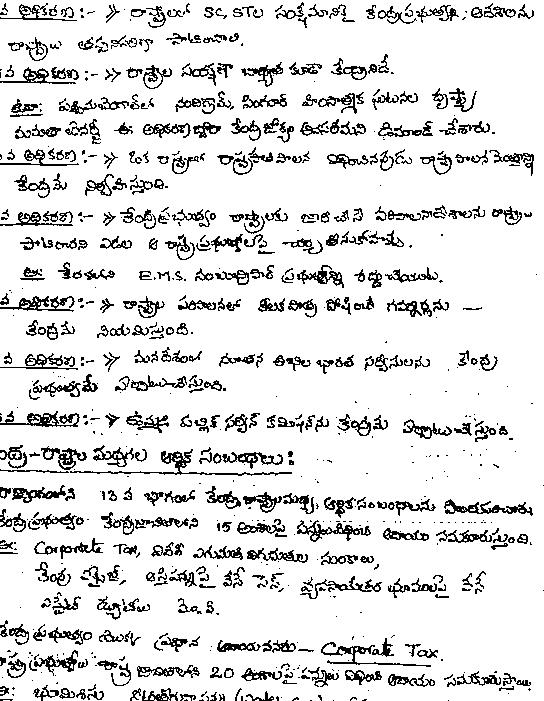 వ అధికరణ :- » రాష్ట్రాలలో SC, STల సంక్షేమానికై కేంద్రప్రభుత్వ ఆదేశాలను
రాష్ట్రాలు తప్పనిసరిగా పాటించాలి.
వ అధికరణ :- » రాష్ట్రాల బాధ్యత కూడా కేంద్రానిదే.
పశ్చిమబెంగాల్‌లో నందిగ్రామ్, సింగూర్ హింసాత్మక ఘటనల దృష్ట్యా
మమతా బెనర్జీ ఈ అధికరణ ద్వారా కేంద్రజోక్యం అవసరమని డిమాండ్ చేశారు.
వ అధికరణ :- » ఒక రాష్ట్రంలో రాష్ట్రపతి పాలన విధించినప్పుడు రాష్ట్ర పాలన మొత్తాన్ని
కేంద్రమే నిర్వహిస్తుంది.
వ అధికరణ :- » కేంద్రప్రభుత్వం రాష్ట్రాలకు జారీ చేసే పరిపాలనాదేశాలను రాష్ట్రాలు
పాటించని ఎడల ఆ రాష్ట్రప్రభుత్వాలపై చర్య తీసుకోవచ్చు.
ఉ: కేరళలోని E.M.S. నంబూద్రిపాద్ ప్రభుత్వాన్ని రద్దుచేయుట.
వ అధికరణ :- » రాష్ట్రాల పరిపాలనలో కీలకపాత్ర పోషించే గవర్నర్లను —
కేంద్రమే నియమిస్తుంది.
వ అధికరణ :- » మనదేశంలో నూతన అఖిల భారత సర్వీసులను కేంద్ర
ప్రభుత్వమే ఏర్పాటుచేస్తుంది.
వ అధికరణ :- » ఉమ్మడి పబ్లిక్ సర్వీస్ కమిషన్‌ను కేంద్రమే ఏర్పాటుచేస్తుంది.
కేంద్ర - రాష్ట్రాల మధ్యగల ఆర్థిక సంబంధాలు :
రాజ్యాంగంలోని 13 వ భాగంలో కేంద్ర రాష్ట్రాల మధ్య ఆర్థిక సంబంధాలను వివరించారు
కేంద్రప్రభుత్వం కేంద్రజాబితాలోని 15 అంశాలపై పన్నులు విధించి ఆదాయం సమకూరుస్తుంది.
ఉ: Corporate Tax, విదేశీ ఎగుమతి దిగుమతుల సుంకాలు,
కేంద్ర ఎక్సైజ్, ఆస్తిపన్నుపై వేసే సెస్, వ్యవసాయేతర భూములపై వేసే
ఎస్టేట్ డ్యూటీలు మొ.వి.
కేంద్ర ప్రభుత్వం యొక్క ప్రధాన ఆదాయవనరు — Corporate Tax.
రాష్ట్ర ప్రభుత్వాలు రాష్ట్ర జాబితాలోని 20 అంశాలపై పన్నులు విధించి ఆదాయం సమకూరుస్తాయి.
ఉ: భూమిశిస్తు